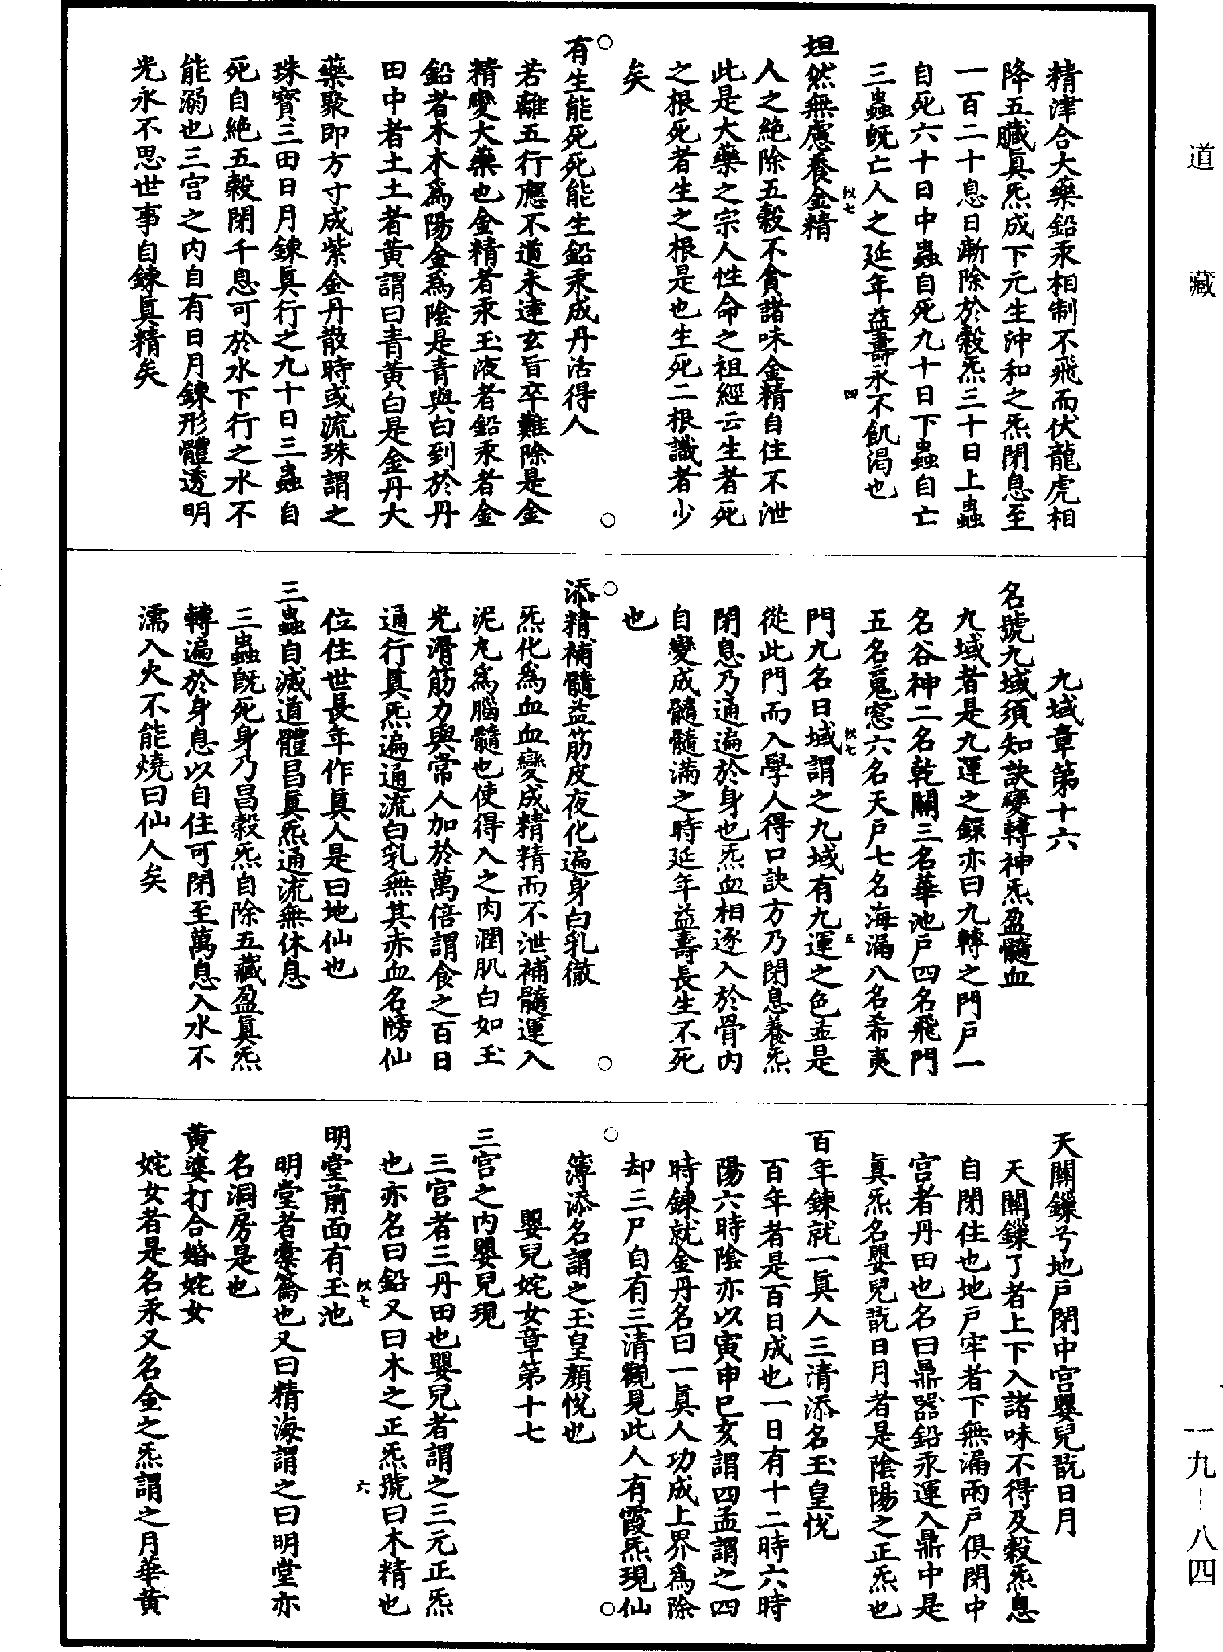 道藏
精津合大藥鉛汞相制不飛而伏龍虎相
降五臟真炁成下元生沖和之炁閉息至
一百二十息日漸除於穀炁三十日上蟲
自死六十日中蟲自死九十日下蟲自亡
三蟲既亡人之延年益壽永不飢渴也
坦然無慮養金精
人之絶除五穀不貪諸味金精自住不泄
此是大藥之宗人性命之祖經云生者死
之根死者生之根是也生死二根識者少
矣
有生能死死能生鉛汞成丹活得人
若離五行應不道未達玄旨卒難除是金
精變大藥也金精者汞玉液者鉛汞者金
鉛者木木爲陽金爲陰是青與白到於丹
田中者土土者黃謂曰青黃白是金丹大
藥聚即方寸成紫金丹散時或流珠謂之
珠寶三田日月鍊真行之九十日三蟲自
死自絶五穀閉千息可於水下行之水不
能溺也三宮之內自有日月鍊形體透明
光永不思世事自鍊真精矣
九域章第十六
名號九域須知訣變轉神炁盈髓血
九域者是九運之鏁亦曰九轉之門戶一
名谷神二名乾關三名華池戶四名飛門
五名䰟窓六名天戶七名海漏八名希夷
門九名曰域謂之九域有九運之色盂是
從此門而入學人得口訣方乃閉息養炁
閉息乃通遍於身也炁血相逐入於骨內
自變成髓髓滿之時延年益壽長生不死
也
添精補髓益筋皮夜化遍身白乳徹
炁化爲血血變成精精而不泄補髓運入
泥丸爲腦髓也使得入之肉潤肌白如玉
光滑筋力與常人加於萬倍謂食之百日
通行真炁遍通流白乳無其赤血名牓仙
位住世長年作真人是曰地仙也
三蟲自滅道體昌真炁通流無休息
三蟲既死身乃昌穀炁自除五藏盈真炁
轉遍於身息以自住可閉至萬息入水不
濡入火不能燒曰仙人矣
天關鏁兮地戶閉中宮嬰兒翫日月
天關鏁了者上下入諸味不得及穀炁息
自閉住也地戶牢者下無漏兩戶俱閉中
宮者丹田也名曰鼎器鉛汞運入鼎中是
真炁名嬰兒翫日月者是陰陽之正炁也
百年鍊就一真人三清添名玉皇悅
百年者是百日成也一日有十二時六時
陽六時陰亦以寅申巳亥謂四孟謂之四
時鍊就金丹名曰一真人功成上界爲除
却三尸自有三清觀見此人有霞炁現仙
簿添名謂之玉皇顏悅也
嬰兒姹女章第十七
三宮之內嬰兒現
三宮者三丹田也嬰兒者謂之三元正炁
也亦名曰鉛又曰木之正炁號曰木精也
明堂前面有玉池
明堂者橐籥也又曰精海謂之曰明堂亦
名洞房是也
黃婆打合婚姹女
姹女者是名汞又名金之炁謂之月華黃
一九－八四